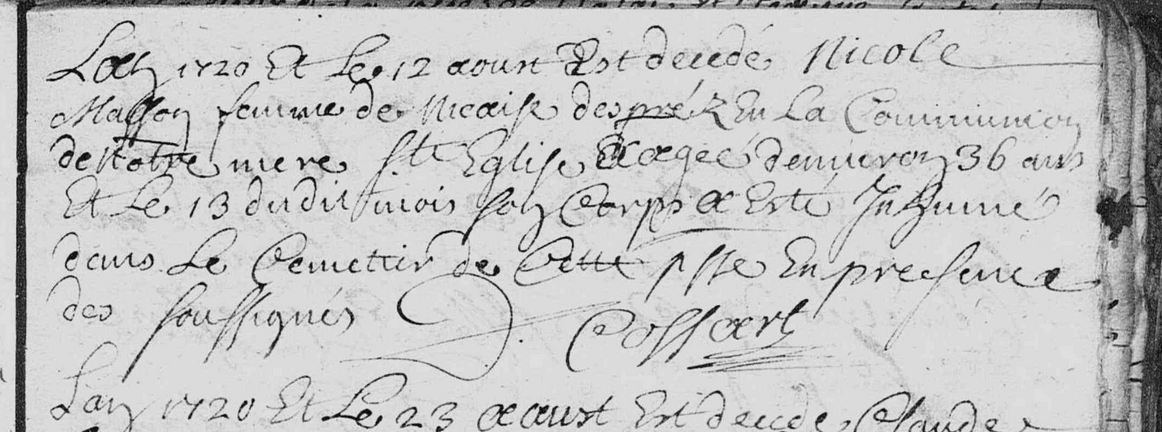 Lan 1720 Et Le 12 aoust Est decedé Nicole
Masson femme de Nicaise despréz En La Communion
de Notre mere Ste Eglise agee denviron 36 ans
Et Le 13 dudit mois son Corps a Esté Inhumé
dans Le Cemettir de Cette psse En presence
des soussignés Cossart
Lan 1720 Et Le 23 aoust Est decede Claude